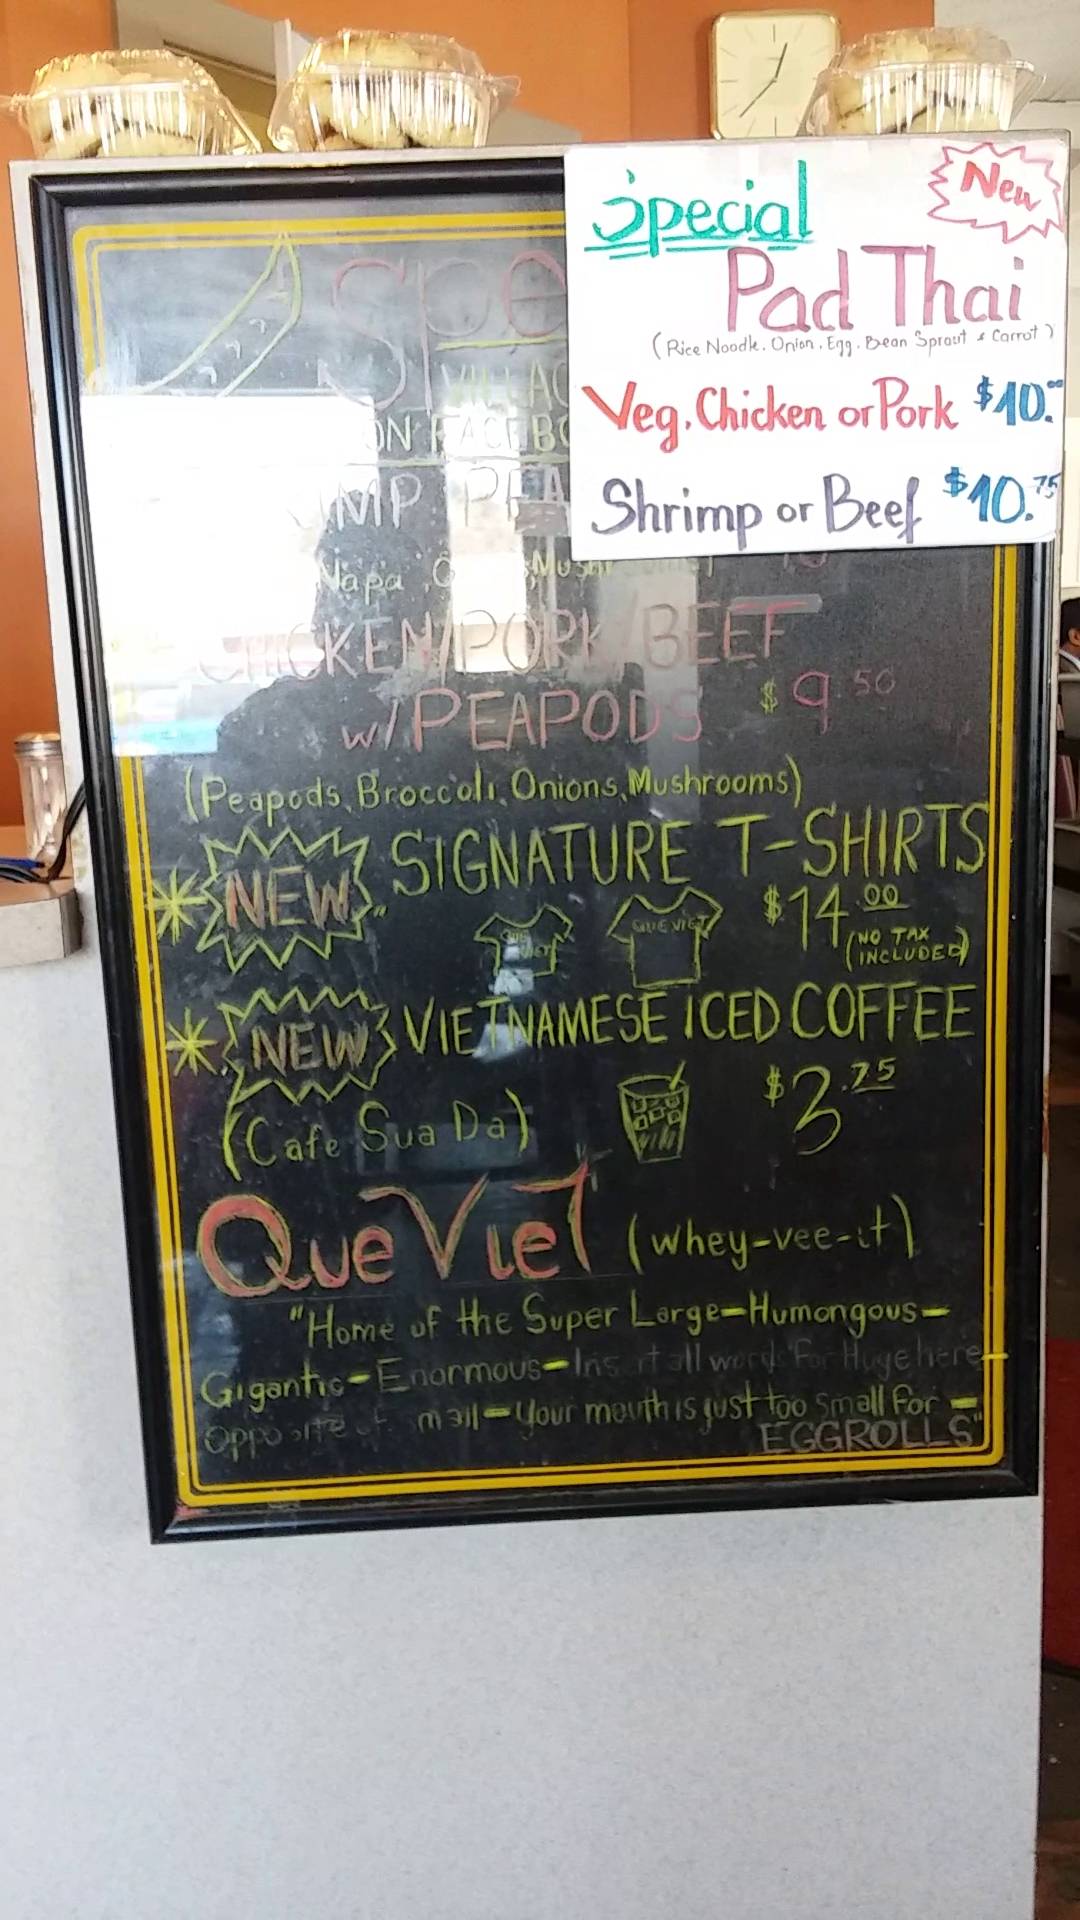 Special
New
Pad Thai
(Rice Noodle, Onion, Egg, Bean Sprout & Carrot)
Veg, Chicken or Pork $10.00
Shrimp or Beef $10.75
ON FACEBO
Napa
CHICKEN/PORK/BEEF
w/PEAPODS $9.50
(Peapods, Broccoli, Onions, Mushrooms)
NEW SIGNATURE T-SHIRTS
QUE VIET $14.00
(NO TAX
INCLUDED)
NEW VIETNAMESE ICED COFFEE
(Cafe Sua Da) $3.75
Que Viet (whey-vee-it)
"Home of the Super Large-Humongous-
Gigantic-Enormous-Insert all words for Huge here-
Opposite of small-Your mouth is just too small for-
EGGROLLS"